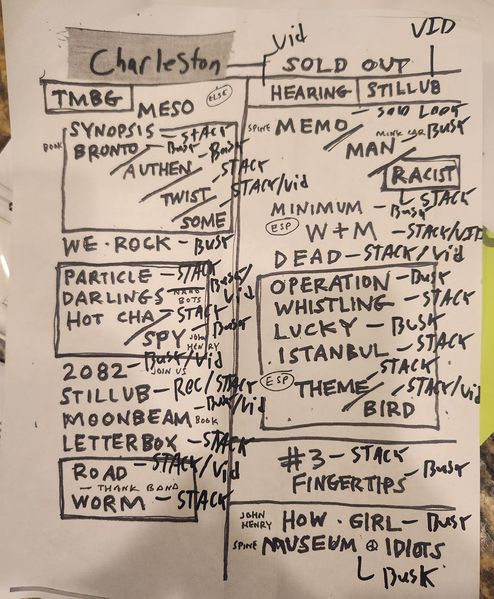 Charleston
Vid
VID
SOLD OUT
TMBG
MESO
ELSE
SYNOPSIS - STACK
BOOK
BRONTO - Busk
AUTHEN - Busk
TWIST - STACK
SOME - STACK/Vid
WE · ROCK - Busk
PARTICLE - STACK
DARLINGS NANO BOTS - Busk/Vid
HOT CHA - STACK
SPY JOHN HENRY - Busk
2082 - Busk/Vid
JOIN US
STILLUB - REC/STACK
MOONBEAM BOOK - Busk/Vid
LETTERBOX - STACK
ROAD - STACK/Vid
- THANK BAND
WORM - STACK
HEARING STILLUB
SPINE MEMO - SOLD LOOK
MAN MINK CAR - Busk
RACIST
STACK
MINIMUM - Busk
ESP W+M - STACK/VID
DEAD - STACK/Vid
OPERATION - Busk
WHISTLING - STACK
LUCKY - Busk
ISTANBUL - STACK
ESP THEME - STACK
BIRD - STACK/Vid
#3 - STACK
FINGERTIPS - Busk
JOHN HENRY HOW · GIRL - Busk
SPINE MUSEUM IDIOTS
Busk